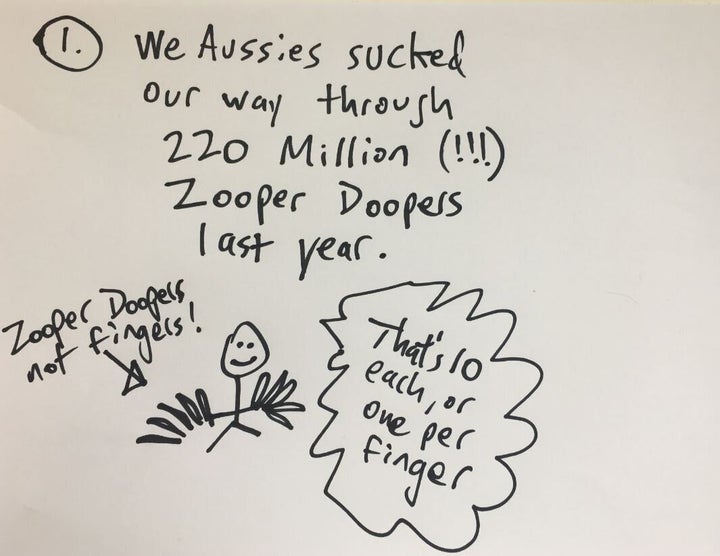 1. We Aussies sucked
our way through
220 Million (!!!)
Zooper Doopers
last year.
Zooper Doopers
not fingers!
That's 10
each, or
one per
finger